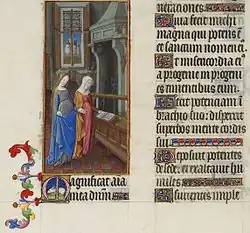 nerationes.
Quia fecit michi
magna qui potens e
et sanctum nomen ei
Et misericordia ei
a progenie in progeni
es timentibus eum.
Fecit potenciam i
brachio suo: dispersit
superbos mente cordis
sui
Deposuit potentes
de sede: et exaltauit hu
miles
Esurientes imple
Magnificat aia
mea dnm